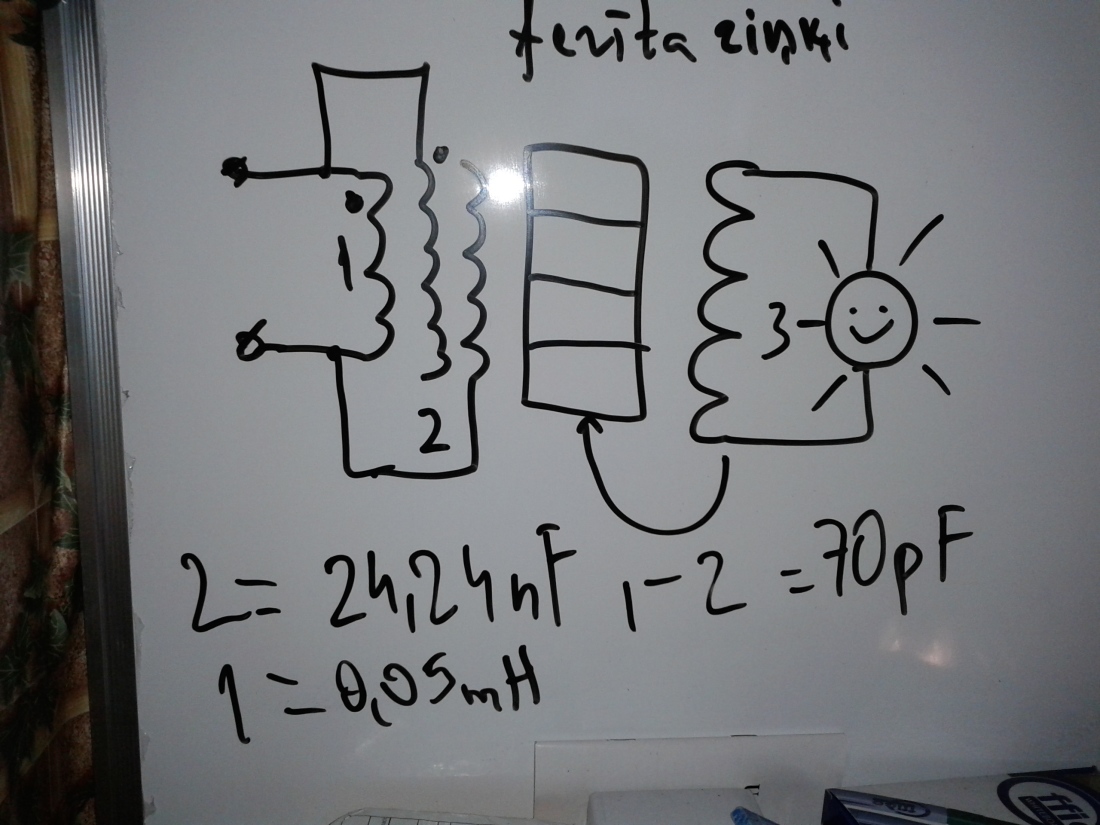 ferīta riņķi
1
2
3
2= 24,24nF, 1-2 =70pF
1=0,05mH